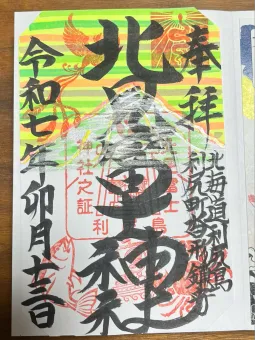 奉拝
北海道利尻島
利尻町沓形鎮守
北見冨士神社
令和七年卯月十三日
神社之証